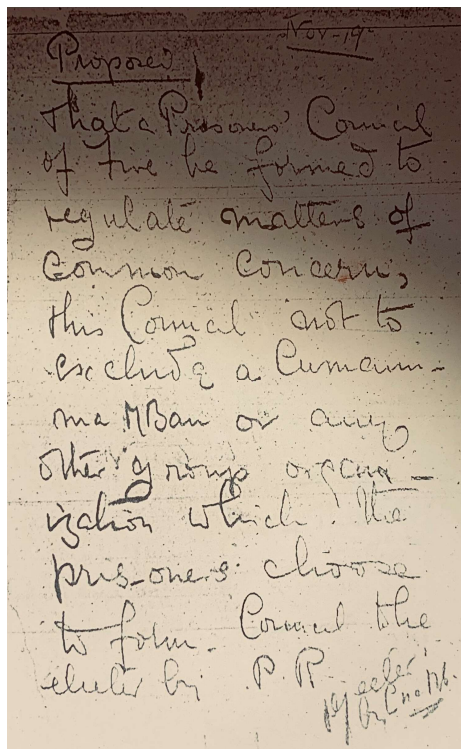 Nov-19
Proposed
that a Prisoners' Council
of five be formed to
regulate matters of
Common Concern,
this Council not to
exclude a Cumann-
na mBan or any
other group organ-
ization which the
prisoners choose
to form. Council to be
elected by P.R.